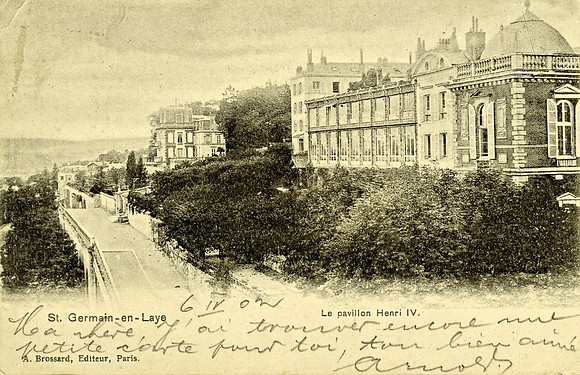 St. Germain-en-Laye 6 IV 02 Le pavillon Henri IV.
Ma chère, j'ai trouver encore une
petite carte pour toi, ton bien aimée
A. Brossard, Editeur, Paris. Arnold